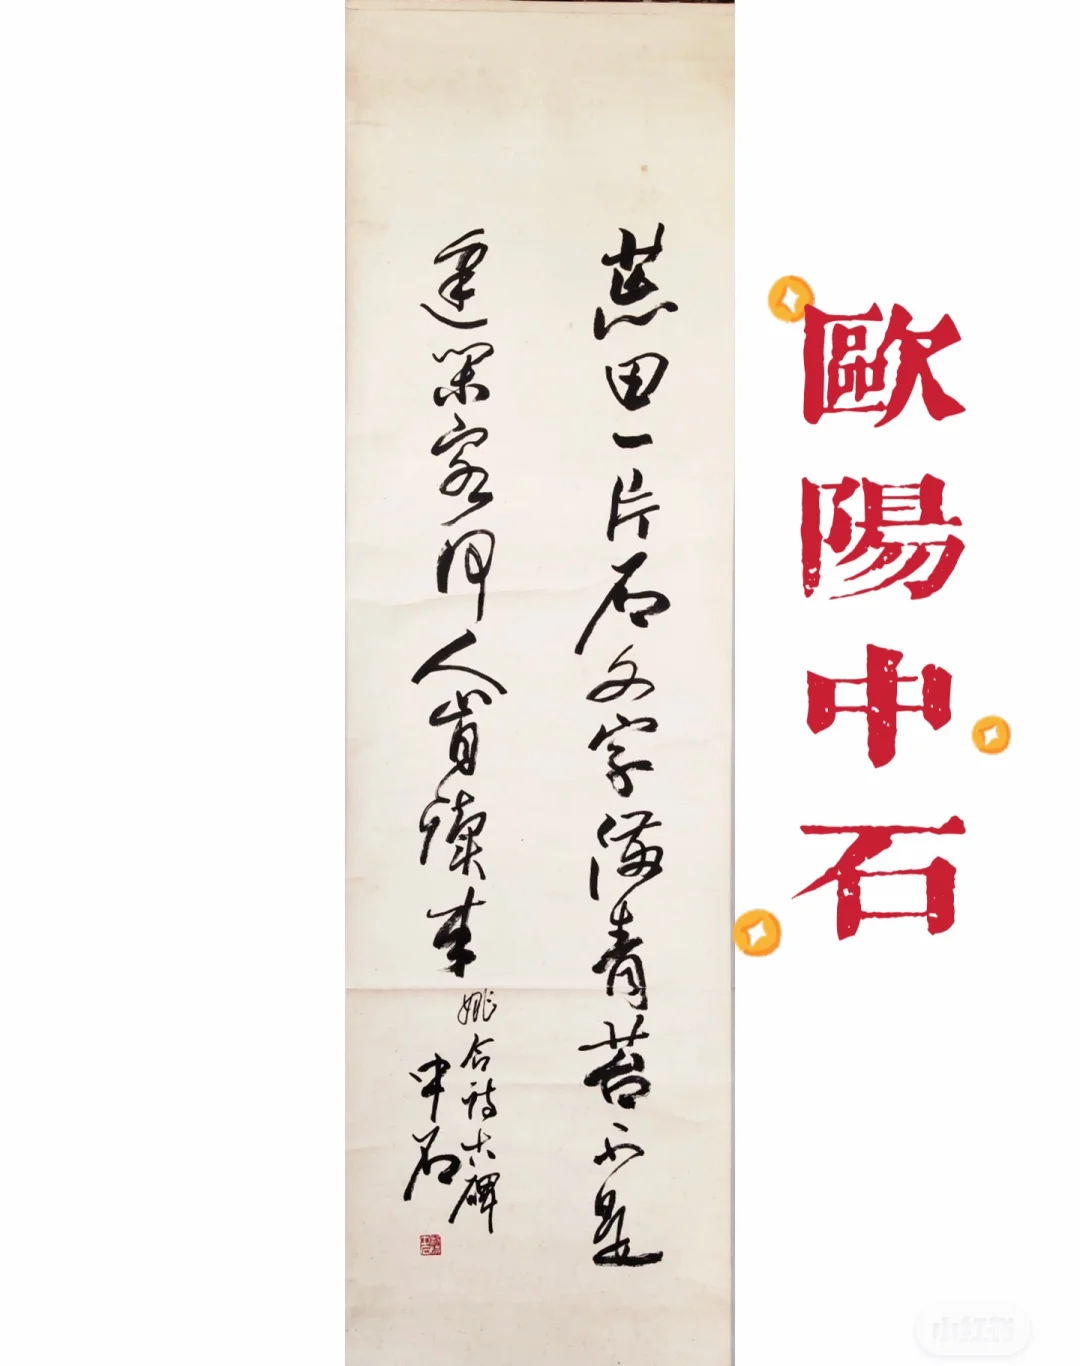 歐陽中石
荒田一片石文字滿青苔不是
逢閑客何人肯讀来
姚合詩古碑
中石
小红书